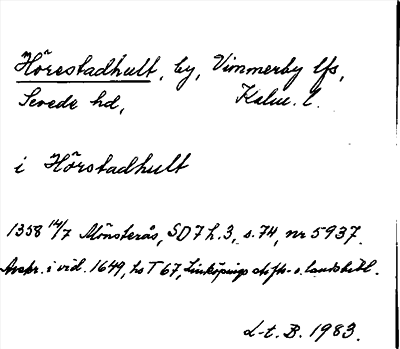 Hörestadhult, by, Vimmerby lfs,
Sevede hd, Kalm. l.
i Hörstadhult
1358 14/7 Mönsterås, SD 7 h. 3, s. 74, nr 5937.
Avskr. i vid. 1649, hs T 67, Linköpings stifts- o. landsbibl.
L-t. B. 1983.